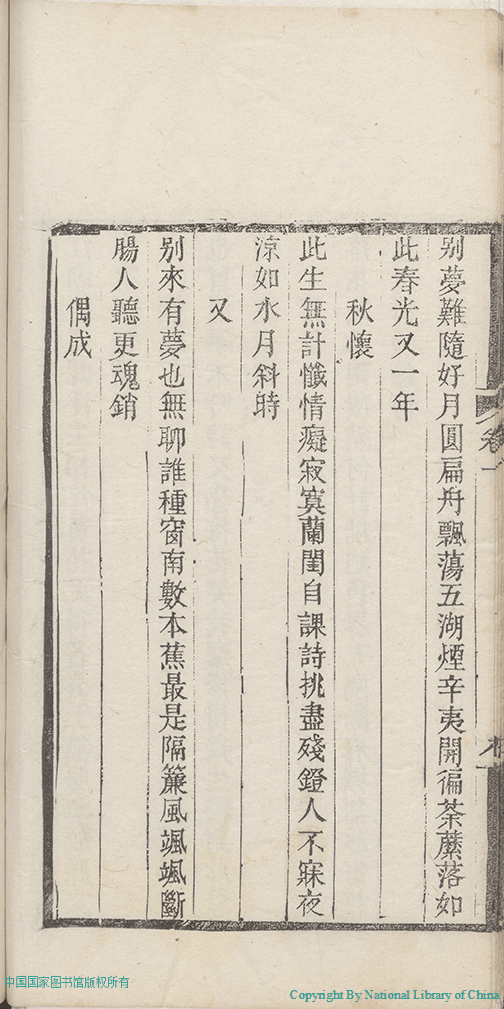 別夢難隨好月圓扁舟飄蕩五湖煙辛夷開徧荼蘼落如
此春光又一年
秋懷
此生無計懺情癡寂寞蘭閨自課詩挑盡殘鐙人不寐夜
涼如水月斜時
又
別來有夢也無聊誰種窗南數本蕉最是隔簾風颯颯斷
腸人聽更魂銷
偶成
卷一
中国国家图书馆版权所有
Copyright By National Library of China